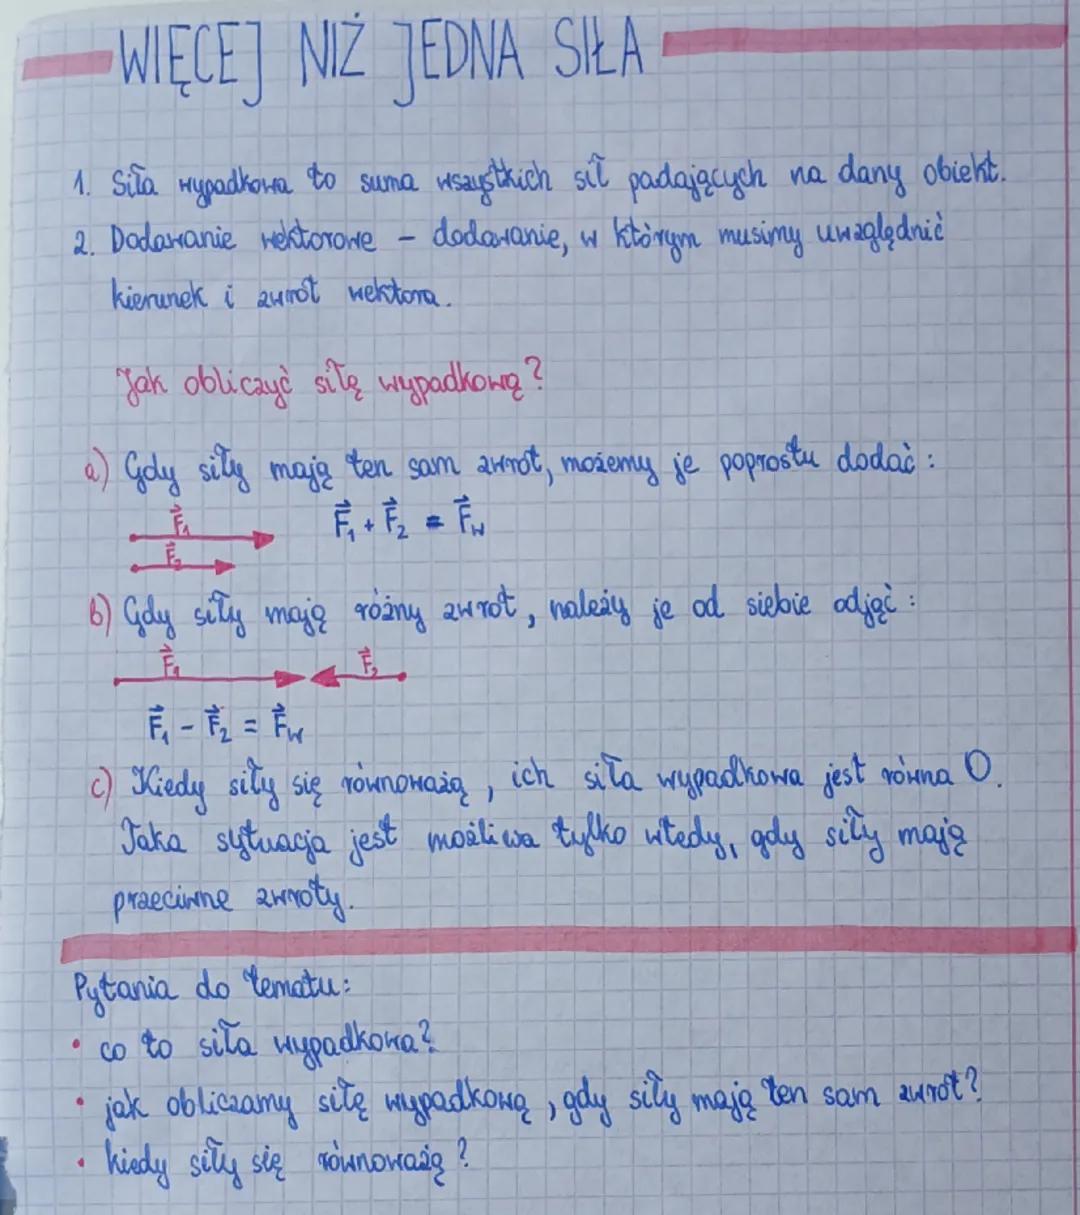 WIĘCEJ NIŻ JEDNA SIŁA
1. Siła wypadkowa to suma wszystkich sił padających na dany obiekt.
2. Dodawanie wektorowe – dodawanie, w którym musimy uwzględnić
kierunek i zwrot wektora.
Jak obliczyć siłę wypadkową?
a) Gdy siły mają ten sam zwrot, możemy je poprostu dodać:
F⃗₁
F⃗₁ + F⃗₂ = F⃗w
F⃗₂
b) Gdy siły mają różny zwrot, należy je od siebie odjąć:
F⃗₁ F⃗₂
F⃗₁ - F⃗₂ = F⃗w
c) Kiedy siły się równoważą, ich siła wypadkowa jest równa 0.
Taka sytuacja jest możliwa tylko wtedy, gdy siły mają
przeciwne zwroty.
Pytania do tematu:
• co to siła wypadkowa?
• jak obliczamy siłę wypadkową, gdy siły mają ten sam zwrot?
• kiedy siły się równoważą?